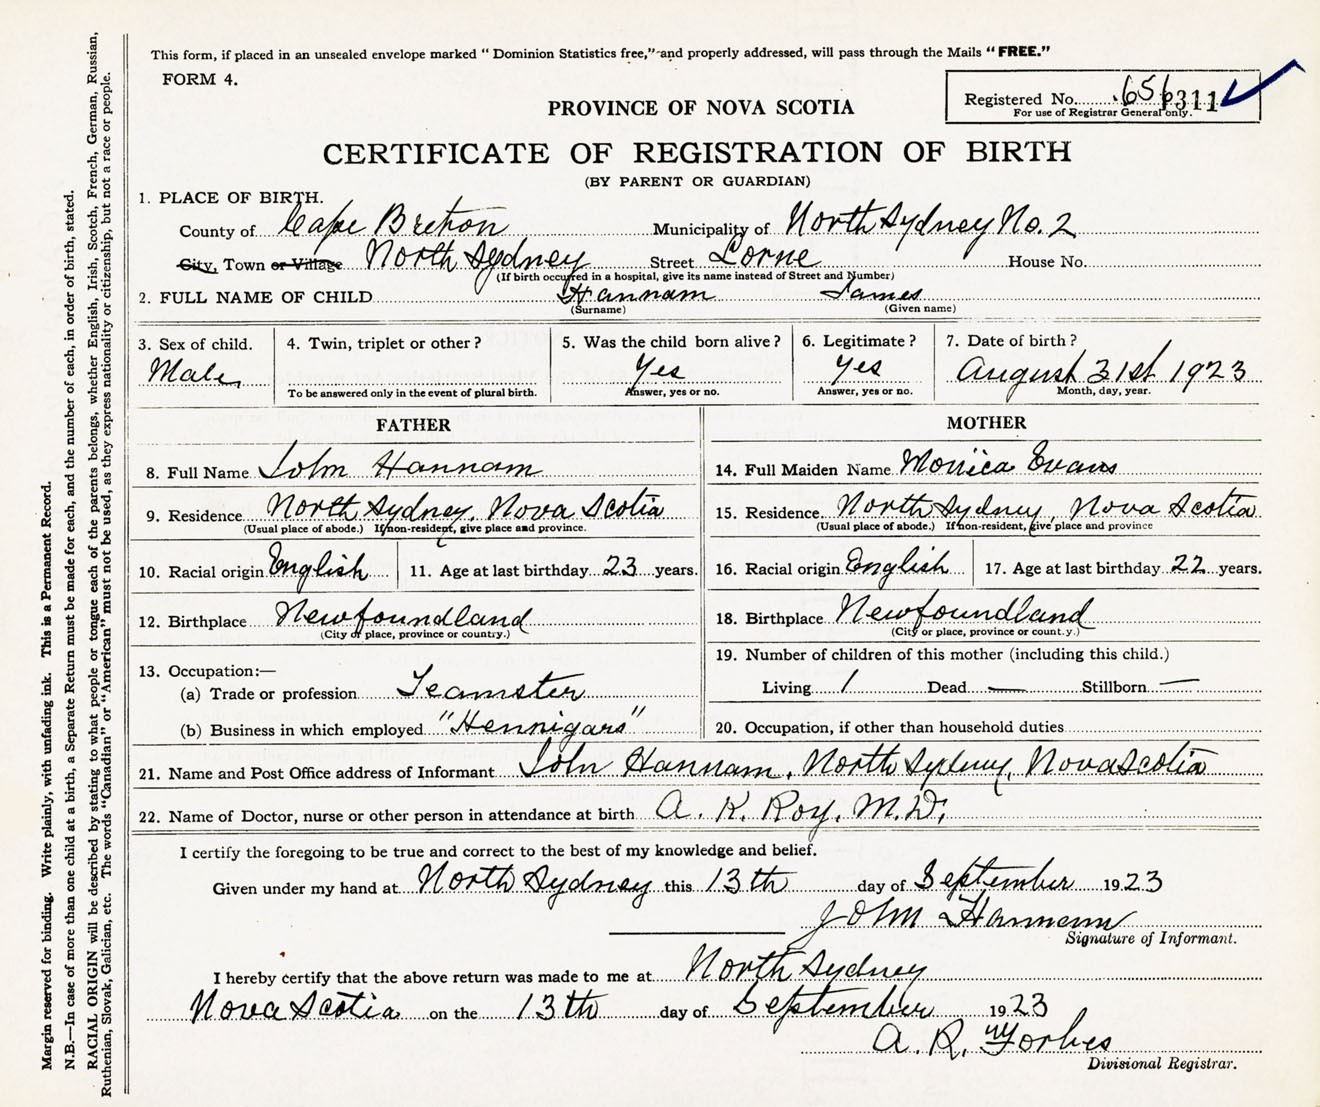 This form, if placed in an unsealed envelope marked " Dominion Statistics free," and properly addressed, will pass through the Mails " FREE."
FORM 4.
Registered No. 656311
For use of Registrar General only.
PROVINCE OF NOVA SCOTIA
CERTIFICATE OF REGISTRATION OF BIRTH
(BY PARENT OR GUARDIAN)
1. PLACE OF BIRTH.
County of Cape Breton Municipality of North Sydney No. 2
City, Town or Village North Sydney Street Lorne House No.
(If birth occurred in a hospital, give its name instead of Street and Number)
2. FULL NAME OF CHILD Hannam James
(Surname) (Given name)
3. Sex of child. 4. Twin, triplet or other ? 5. Was the child born alive ? 6. Legitimate ? 7. Date of birth ?
Male Yes Yes August 31st 1923
To be answered only in the event of plural birth. Answer, yes or no. Answer, yes or no. Month, day, year.
FATHER
8. Full Name John Hannam
9. Residence North Sydney, Nova Scotia
(Usual place of abode.) If non-resident, give place and province.
10. Racial origin English 11. Age at last birthday 23 years.
12. Birthplace Newfoundland
(City or place, province or country.)
13. Occupation:—
(a) Trade or profession Teamster
(b) Business in which employed "Hennigars"
MOTHER
14. Full Maiden Name Monica Evans
15. Residence North Sydney, Nova Scotia
(Usual place of abode.) If non-resident, give place and province
16. Racial origin English 17. Age at last birthday 22 years.
18. Birthplace Newfoundland
(City or place, province or count.y.)
19. Number of children of this mother (including this child.)
Living 1 Dead — Stillborn —
20. Occupation, if other than household duties
21. Name and Post Office address of Informant John Hannam, North Sydney, Nova Scotia
22. Name of Doctor, nurse or other person in attendance at birth A. K. Roy, M.D.
I certify the foregoing to be true and correct to the best of my knowledge and belief.
Given under my hand at North Sydney this 13th day of September 1923
John Hannam
Signature of Informant.
I hereby certify that the above return was made to me at North Sydney
Nova Scotia on the 13th day of September 1923
A. R. Forbes
Divisional Registrar.
Margin reserved for binding. Write plainly, with unfading ink. This is a Permanent Record.
N.B.—In case of more than one child at a birth, a Separate Return must be made for each, and the number of each, in order of birth, stated.
RACIAL ORIGIN will be described by stating to what people or tongue each of the parents belongs, whether English, Irish, Scotch, French, German, Russian,
Ruthenian, Slovak, Galician, etc. The words "Canadian" or "American" must not be used, as they express nationality or citizenship, but not a race or people.